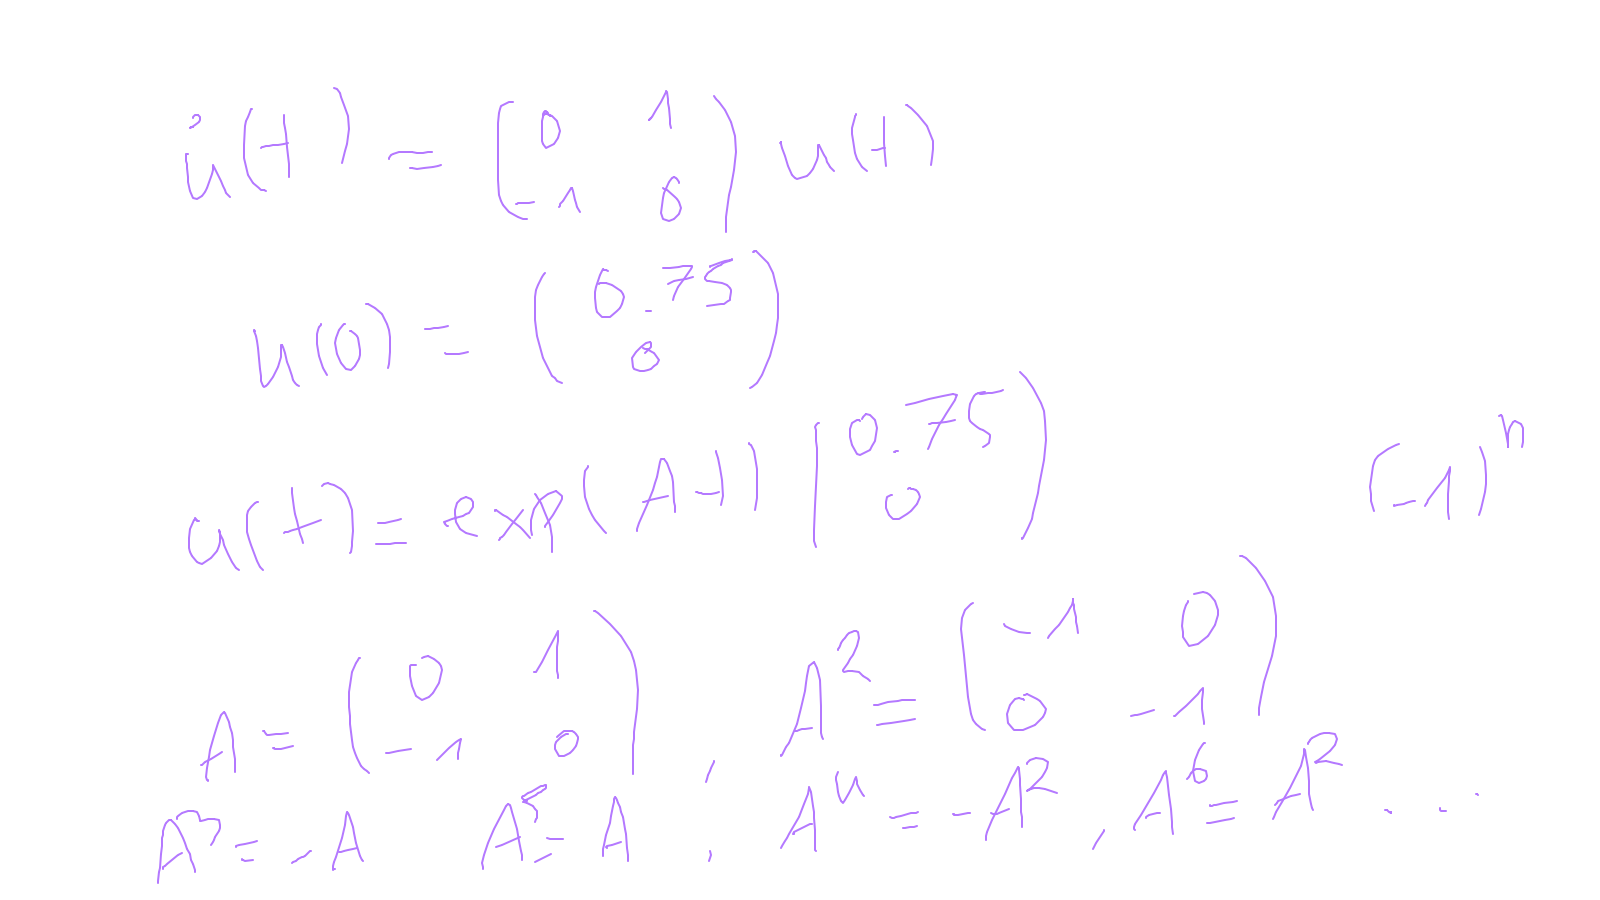 u̇(t) = (0 1 -1 0) u(t)
u(0) = (0.75 0)
u(t) = exp(At) (0.75 0) (-1)^n
A = (0 1 -1 0), A^2 = (-1 0 0 -1)
A^3 = -A A^5 = A ; A^4 = -A^2, A^6 = A^2 . . .